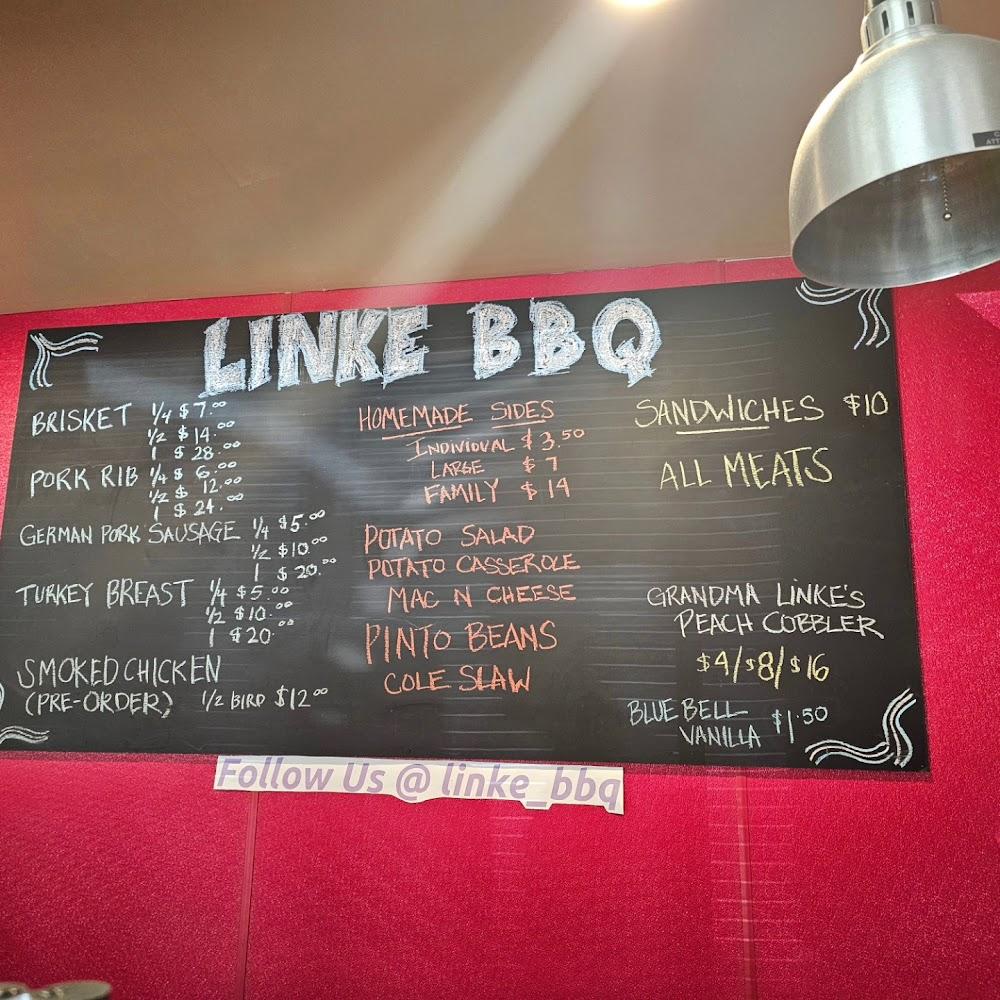 LINKE BBQ
BRISKET 1/4 $7.00
1/2 $14.00
1 $28.00
PORK RIB 1/4 $6.00
1/2 $12.00
1 $24.00
GERMAN PORK SAUSAGE 1/4 $5.00
1/2 $10.00
1 $20.00
TURKEY BREAST 1/4 $5.00
1/2 $10.00
1 $20.00
SMOKED CHICKEN
(PRE-ORDER) 1/2 BIRD $12.00
HOMEMADE SIDES
INDIVIDUAL $3.50
LARGE $7
FAMILY $14
POTATO SALAD
POTATO CASSEROLE
MAC N CHEESE
PINTO BEANS
COLE SLAW
SANDWICHES $10
ALL MEATS
GRANDMA LINKE'S
PEACH COBBLER
$4/$8/$16
BLUE BELL
VANILLA $1.50
Follow Us @ linke_bbq